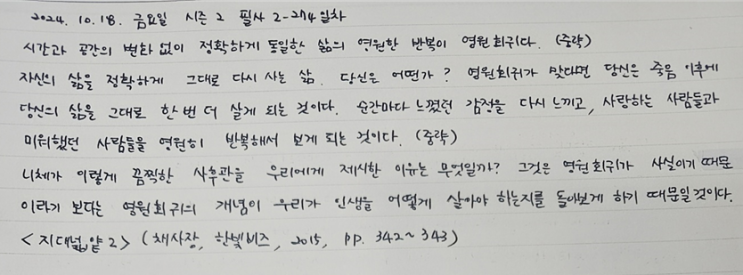 2024. 10. 18. 금요일 시즌 2 필사 2-274일차
시간과 공간의 변화 없이 정확하게 동일한 삶의 영원한 반복이 영원회귀다. (중략)
자신의 삶을 정확하게 그대로 다시 사는 삶. 당신은 어떤가? 영원회귀가 맞다면 당신은 죽음 이후에
당신의 삶을 그대로 한 번 더 살게 되는 것이다. 순간마다 느꼈던 감정을 다시 느끼고, 사랑하는 사람들과
미워했던 사람들을 영원히 반복해서 보게 되는 것이다. (중략)
니체가 이렇게 끔찍한 사후관을 우리에게 제시한 이유는 무엇일까? 그것은 영원회귀가 사실이기 때문
이라기 보다는 영원회귀의 개념이 우리가 인생을 어떻게 살아야 하는지를 돌아보게 하기 때문일 것이다.
<지대넓얕 2> (채사장, 한빛비즈, 2015, pp. 342~343)